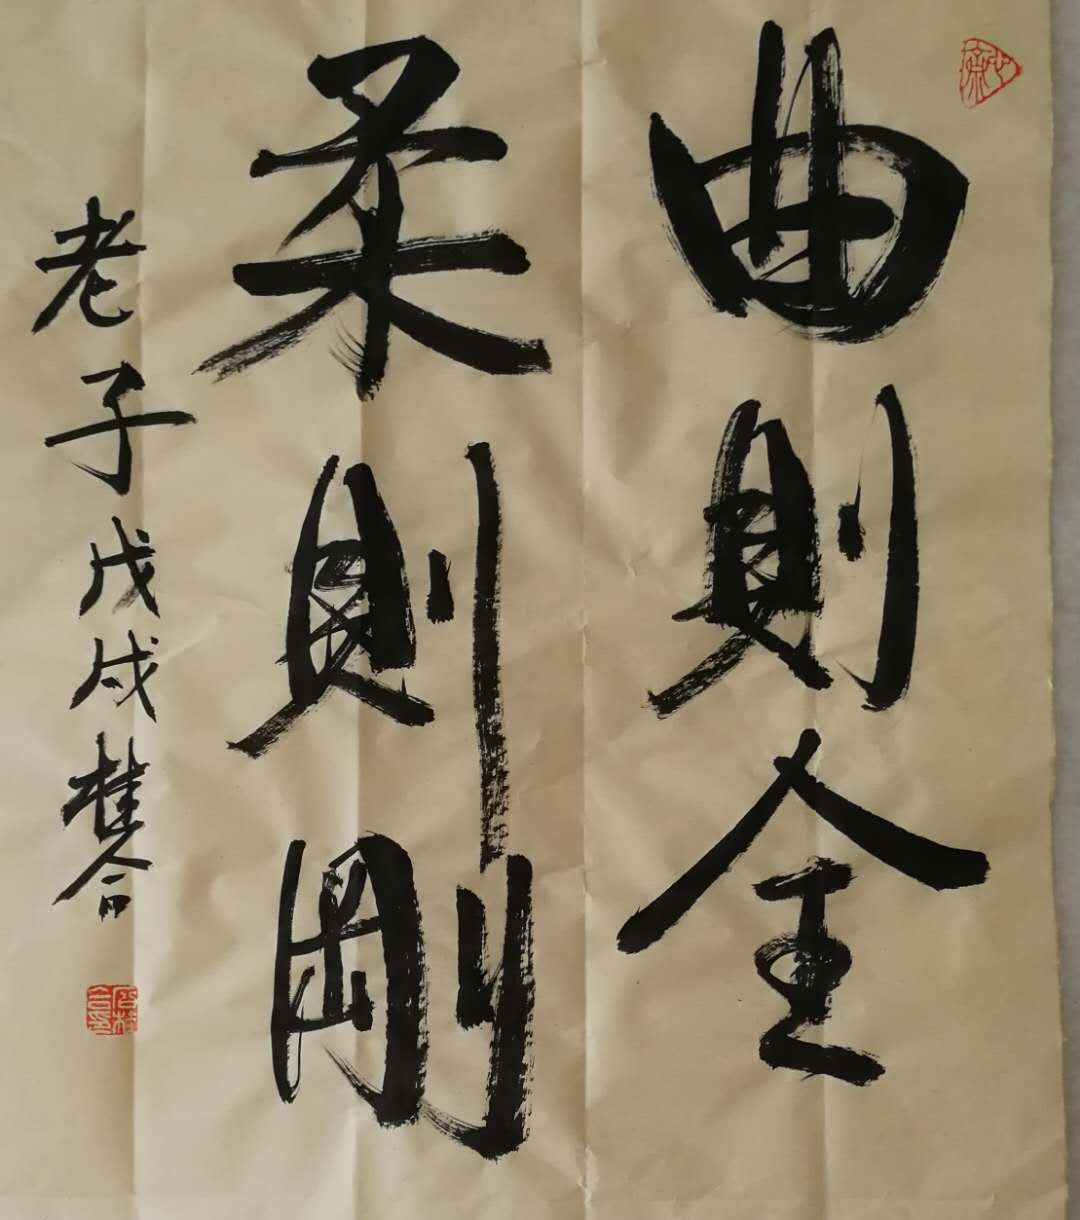 曲則全
柔則剛
老子戊戌桂合